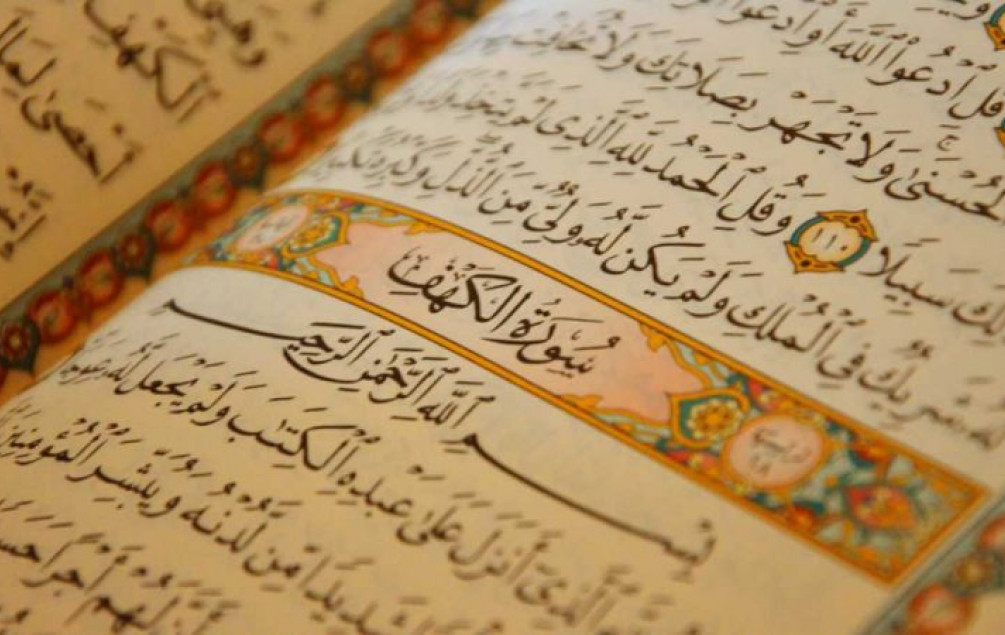 قُلِ ٱدْعُوا۟ ٱللَّهَ أَوِ ٱدْعُوا۟
ٱلْحُسْنَىٰ وَلَا تَجْهَرْ بِصَلَاتِكَ وَلَا تُخَافِتْ
سَبِيلًا ١١٠ وَقُلِ ٱلْحَمْدُ لِلَّهِ ٱلَّذِى لَمْ يَتَّخِذْ وَلَدًا
شَرِيكٌ فِى ٱلْمُلْكِ وَلَمْ يَكُن لَّهُۥ وَلِىٌّ مِّنَ ٱلذُّلِّ وَكَبِّرْهُ تَكْبِيرًا
ترتيبها ١٨ سُورَةُ الكَهْفِ
بِسْمِ ٱللَّهِ ٱلرَّحْمَٰنِ ٱلرَّحِيمِ
ٱلَّذِىٓ أَنزَلَ عَلَىٰ عَبْدِهِ ٱلْكِتَٰبَ وَلَمْ يَجْعَل لَّهُۥ عِوَجَا
شَدِيدًا مِّن لَّدُنْهُ وَيُبَشِّرَ ٱلْمُؤْمِنِينَ
لَهُمْ أَجْرًا حَسَنًا
وَهَيِّئْ
ٱلْكَهْفِ
أَحْصَىٰ لِمَا